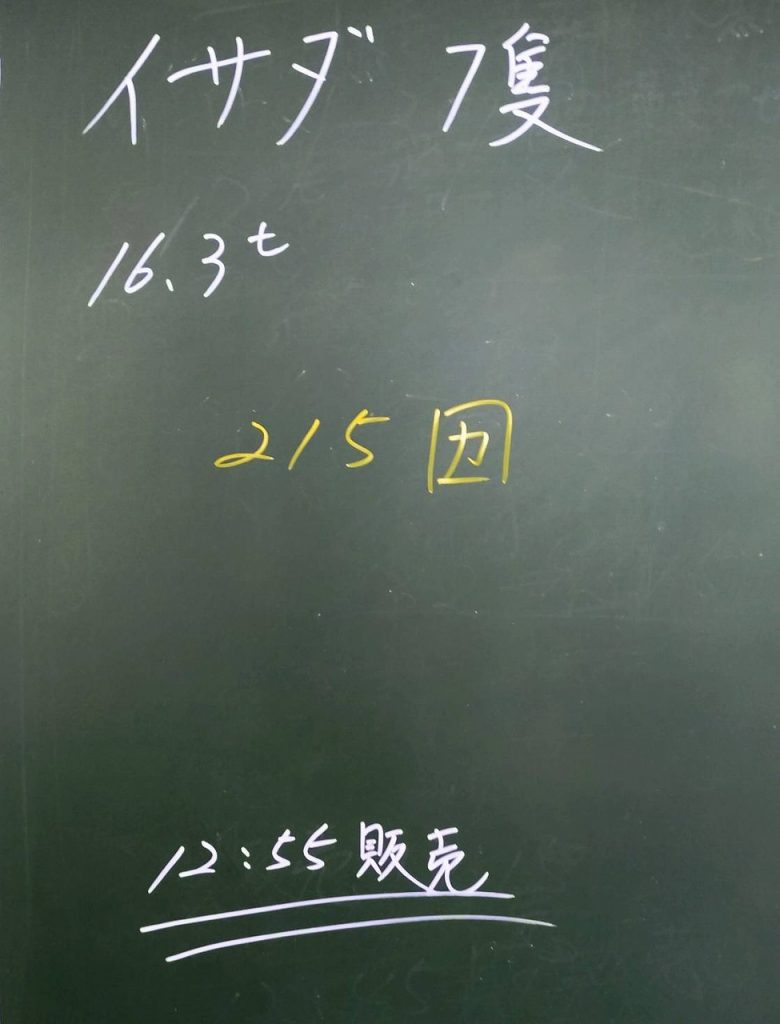 イサダ 7隻
16.3t
215 カ
12:55 販売